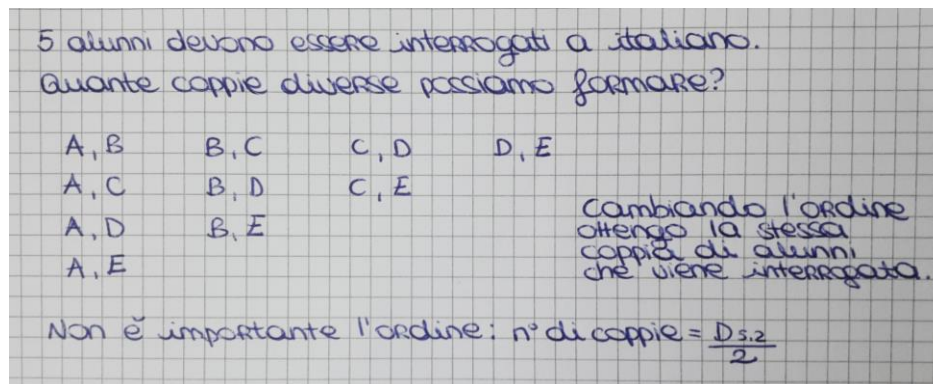 5 alunni devono essere interrogati a italiano.
Quante coppie diverse possiamo formare?
A, B B, C C, D D, E
A, C B, D C, E
A, D B, E
A, E
Cambiando l'ordine
ottengo la stessa
coppia di alunni
che viene interrogata.
Non è importante l'ordine: n° di coppie = D5,2/2